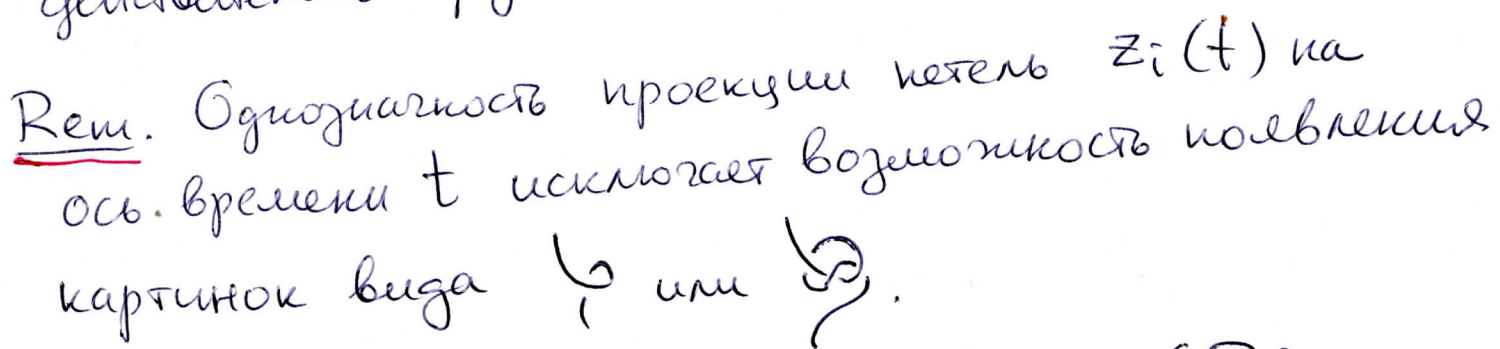 Rem. Однозначность проекции петель zᵢ(t) на
ось времени t исключает возможность появления
картинок вида или .